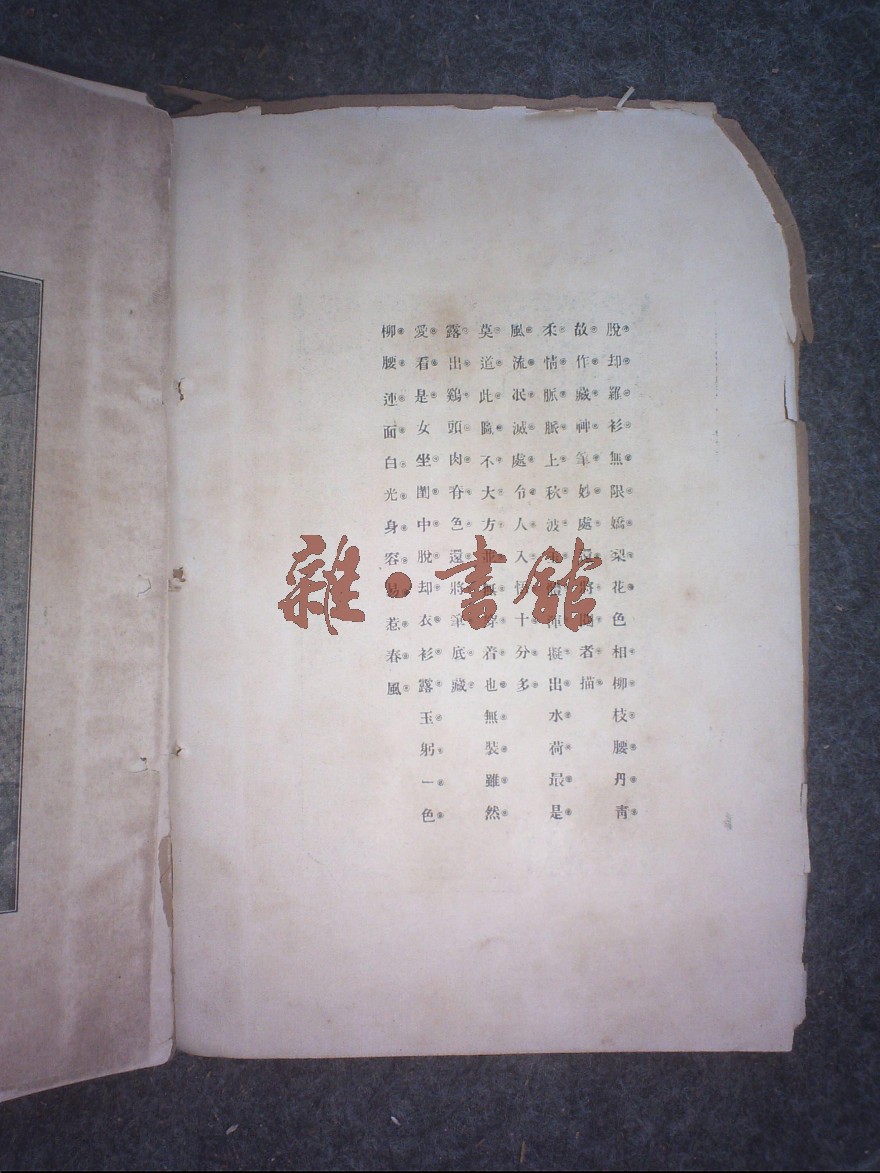 脫却羅衫無限嬌梨花色相柳枝腰丹青
故作藏神筆妙處還將者描
柔情脈脈上秋波渾擬出水荷最是
風流泯滅處令人入悟十分多
莫道此不大方着也無裝雖然
露出鷄頭肉春色還將筆底藏
愛看是女坐閨中脫却衣衫露玉躬一色
柳腰連面白光身容易惹春風
雜·書館